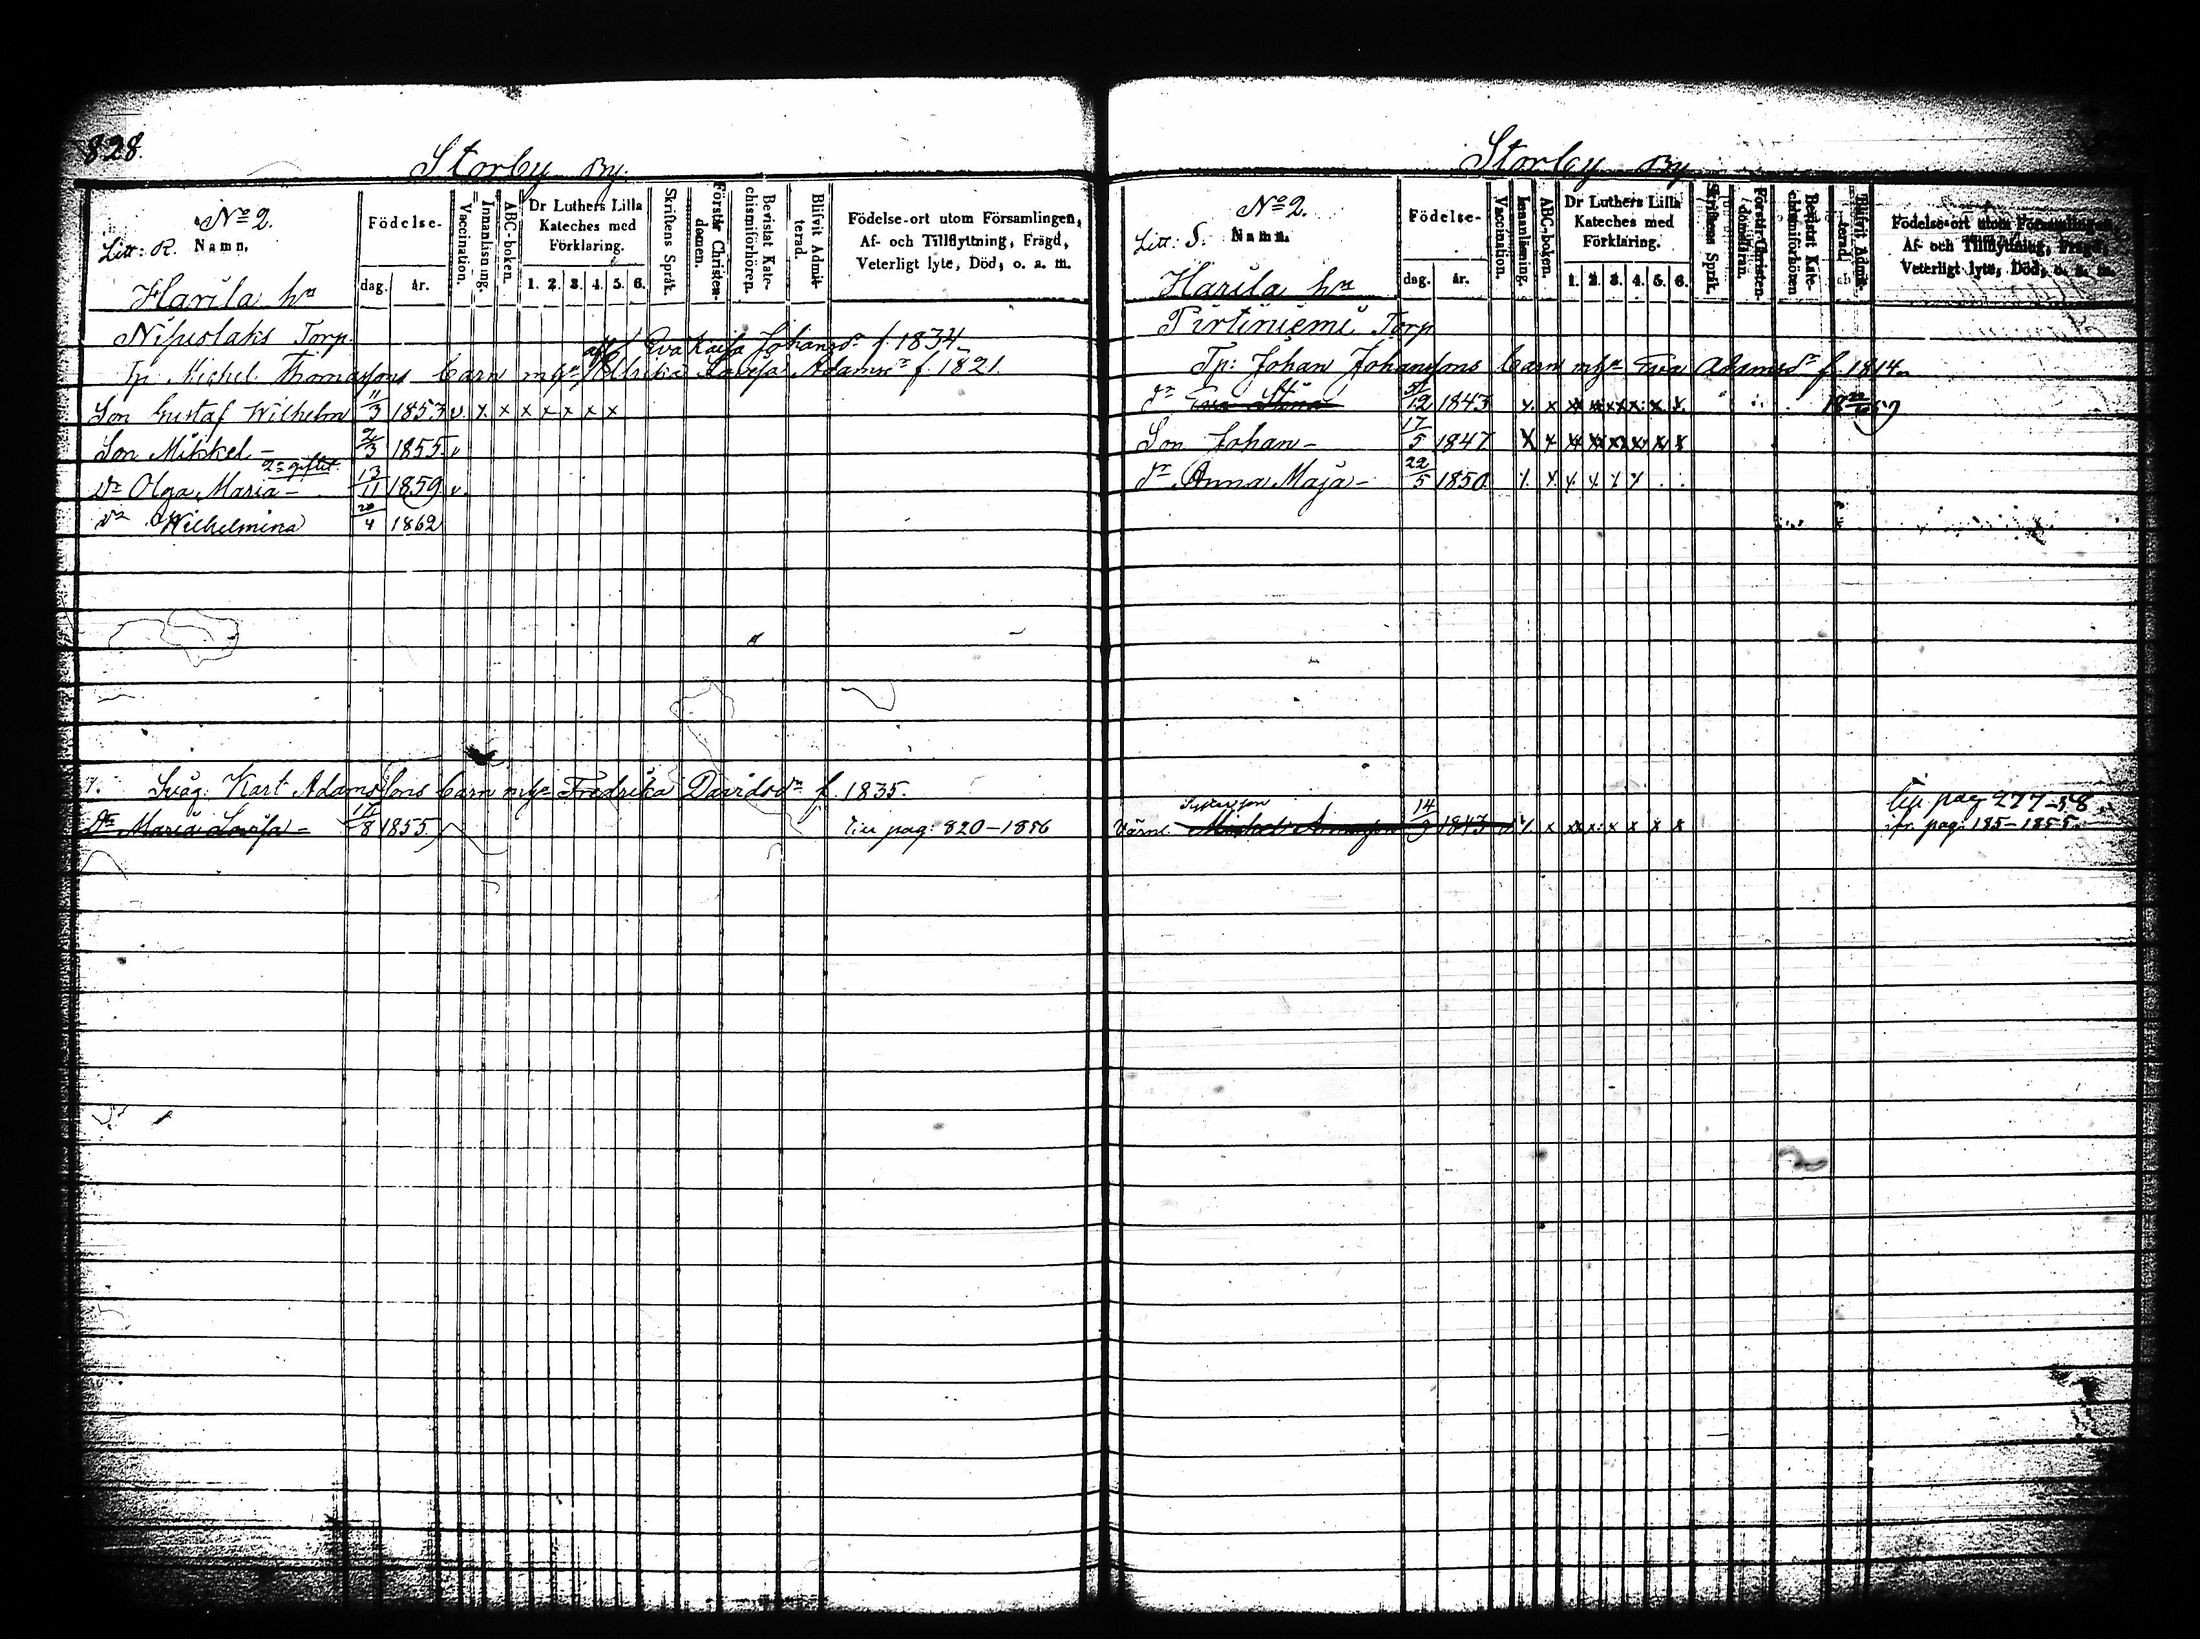 828.
Storby By.
No 2.
Litt: R. Namn.
Födelse-
dag. år.
Vaccination.
Innanläsning.
ABC-boken.
Dr Luthers Lilla Kateches med Förklaring.
1. 2. 3. 4. 5. 6.
Skriftens Språk.
Förstår Christen-domen.
Bevistat Kate-chismiförhören.
Blifvit Admit-terad.
Födelse-ort utom Församlingen,
Af- och Tillflyttning, Frägd,
Veterligt lyte, Död, o. a. m.
Harila hn
Nipuslaks Torp.
Eva Kaisa Johansdr f. 1834
Tp. Michel Thomassons barn m Ulrika Lovisa Adamsdr f. 1821.
Son Gustaf Wilhelm 11/3 1853 v. x x x x x x x
Son Mikkel - 1855 v
2a giftet.
Dr Olga Maria - 13/11 1859 v.
Dr Wilhelmina 20/4 1862
Svåg: Karl Adamssons barn m Fredrika Davidsdr f. 1835.
Dr Maria Lovisa - 17/8 1855. Till pag: 820-1856
Storby By
No 2.
Litt: S. Namn.
Födelse-
dag. år.
Vaccination.
Innanläsning.
ABC-boken.
Dr Luthers Lilla Kateches med Förklaring.
1. 2. 3. 4. 5. 6.
Skriftens Språk.
Förstår Christen-domsläran.
Bevistat Kate-chismiförhören
Blifvit Admit-terad.
Födelse-ort utom Församlingen,
Af- och Tillflyttning, Frägd,
Veterligt lyte, Död, o. a. m.
Harila hn
Pirtiniemi Torp
Tp: Johan Johanssons barn m Eva Adamsdr f. 1814.
Dr Eva Stina 1843 x x x x x x x x
Son Johan - 17/5 1847 x x x x x x x x
Dr Anna Maja - 22/5 1850 x x x x x x
Systerson
Värnl. Michel 14/9 1843 x x x x x x x x
Till pag 277-58
fr. pag: 185-1855.